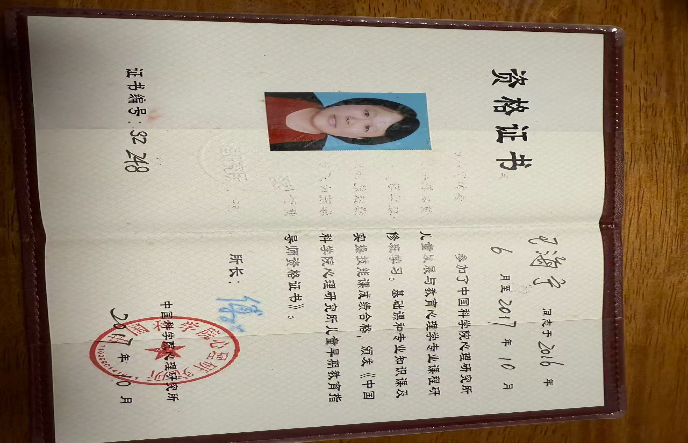 资格证书
证书编号：SZ 248
同志于 2016 年
6 月至 2017 年 10 月
参加了中国科学院心理研究所
儿童发展与教育心理学专业课程研
修班学习，基础课和专业知识课及
实操技能课成绩合格，颁发《中国
科学院心理研究所儿童早期教育指
导师资格证书》。
所长：
中国科学院心理研究所
2017 年 10 月